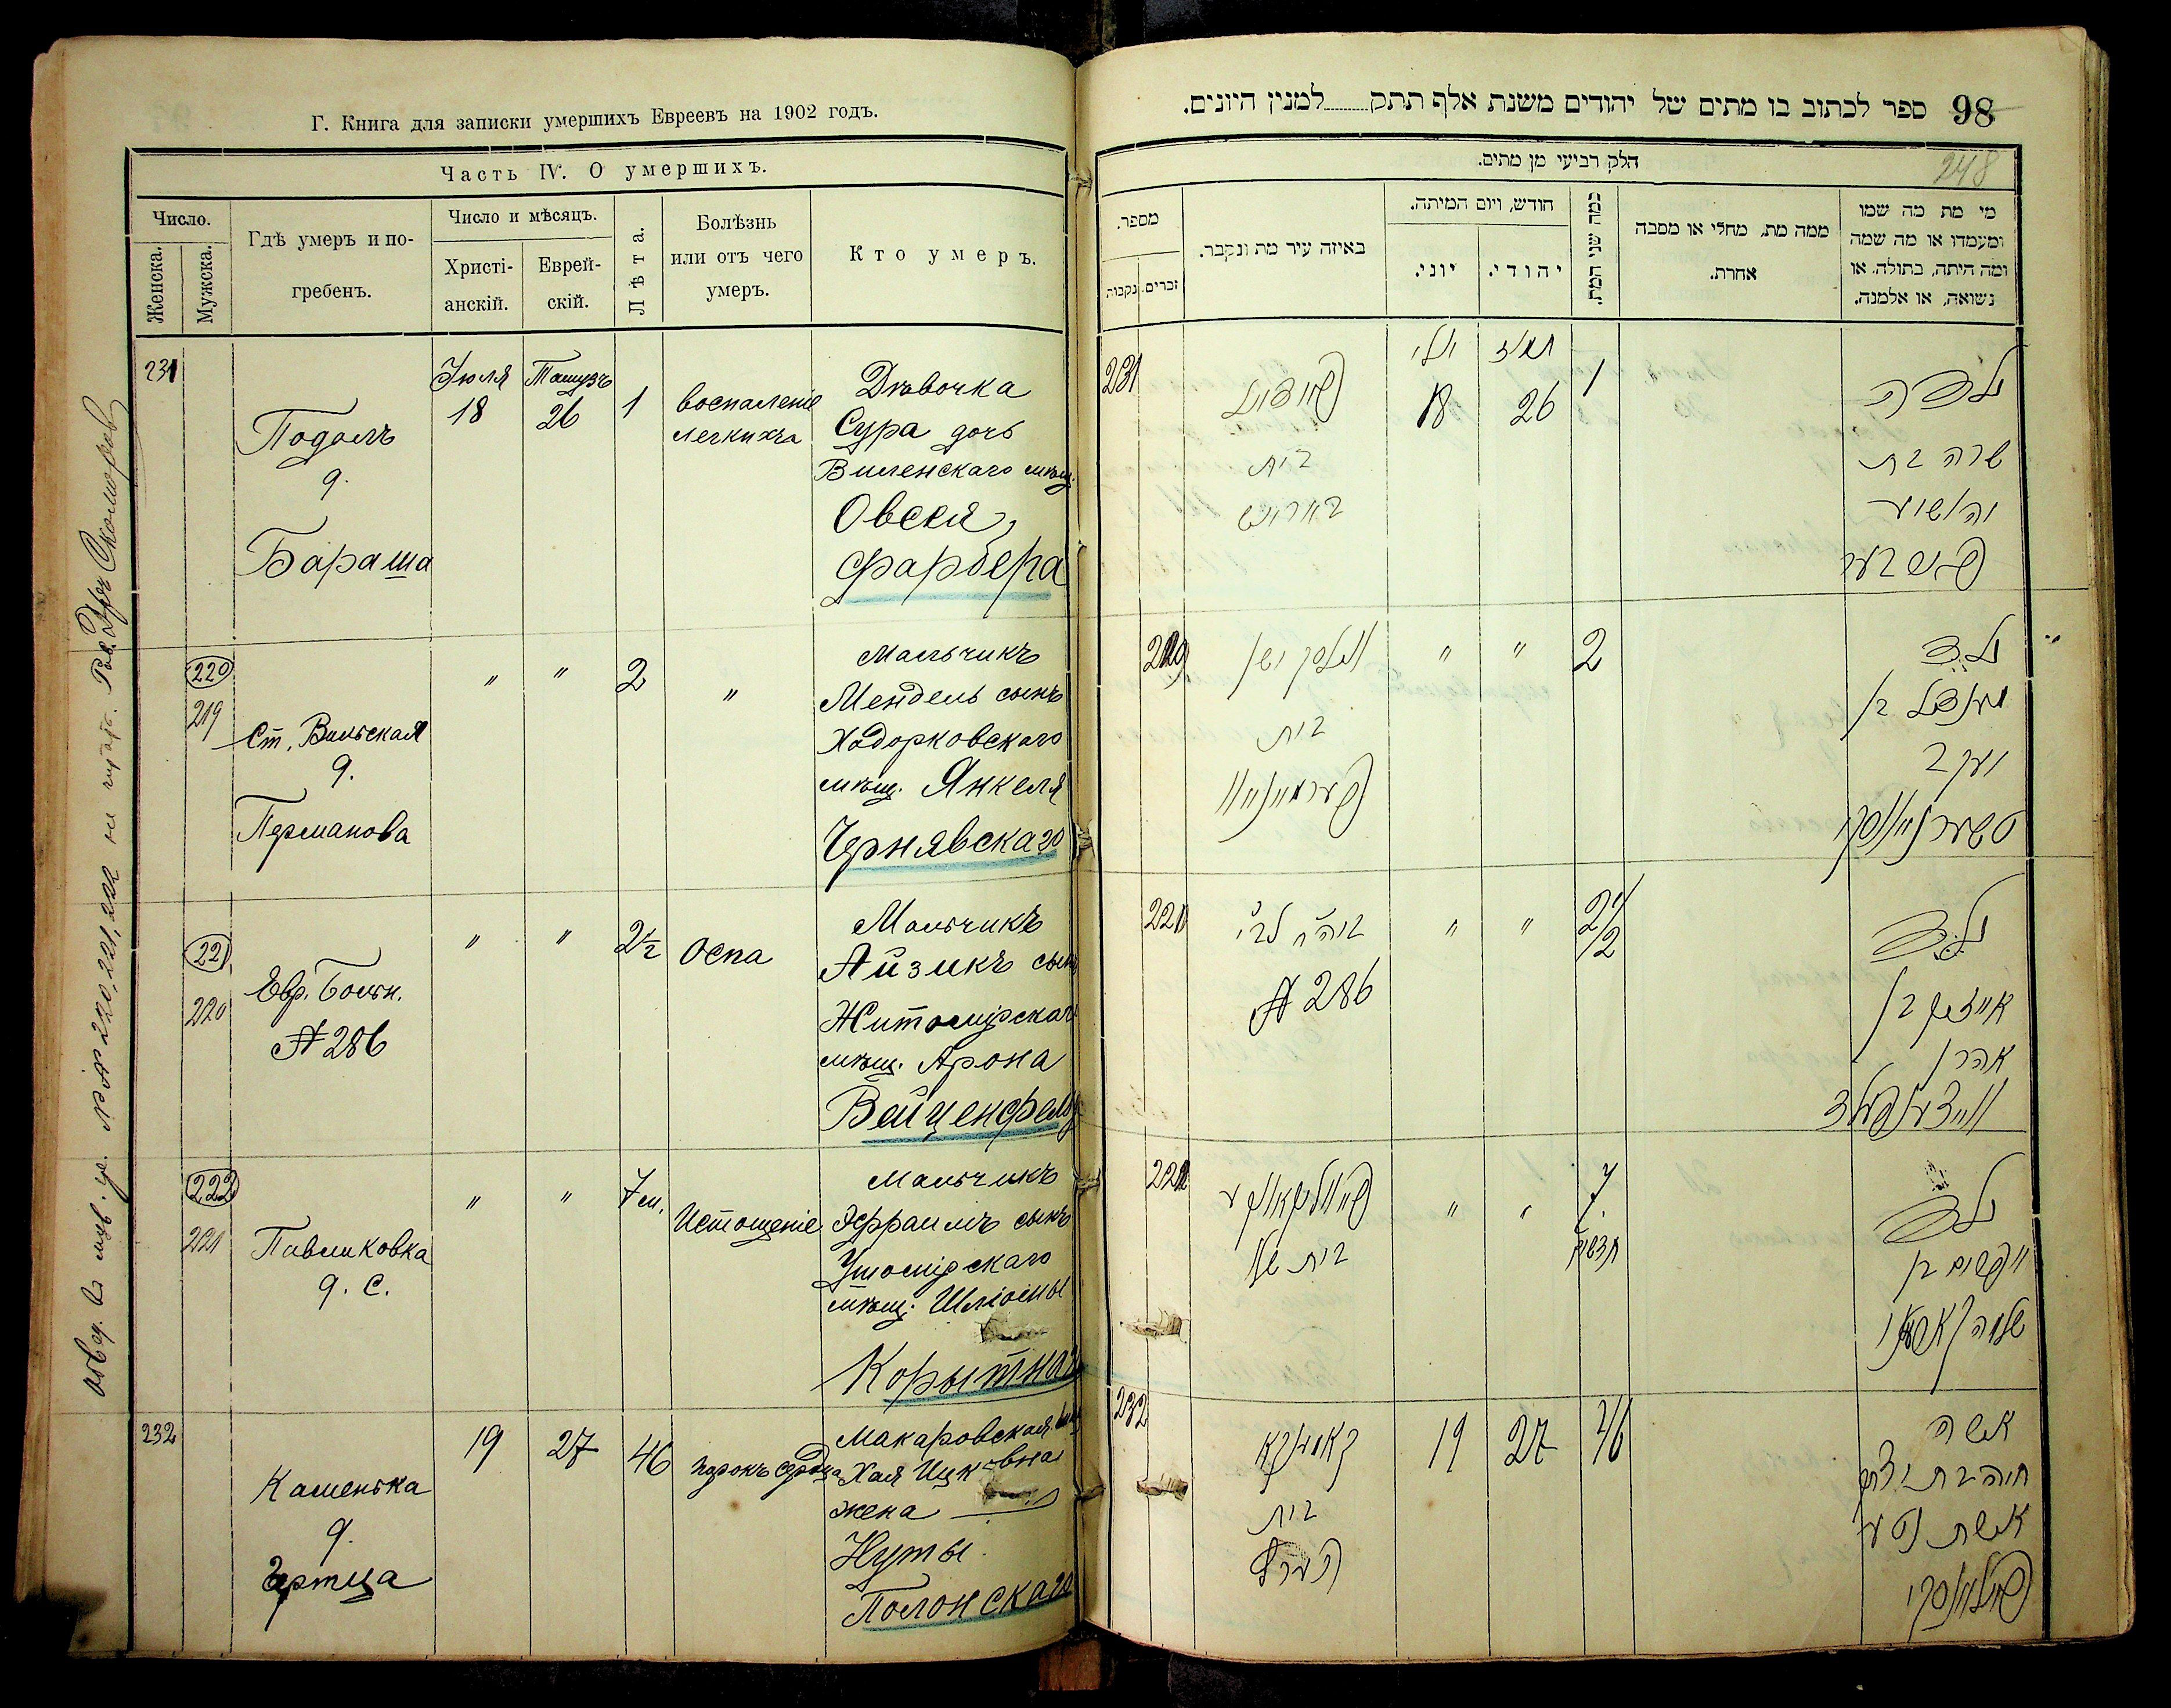 Г. Книга для записки умершихъ Евреевъ на 1902 годъ.
Часть IV. О умершихъ.
Число.
Женска.
Мужска.
Гдѣ умеръ и погребенъ.
Число и мѣсяцъ.
Христіанскій.
Еврейскій.
Лѣта.
Болѣзнь или отъ чего умеръ.
Кто умеръ.
231
Подолъ
д.
Бараша
Іюля
18
Тамузъ
26
1
воспаленіе
легкихъ
Дѣвочка
Сура дочь
Виленскаго мѣщ.
Овсея
Фарбера
220
219
Ст. Вильская
д.
Перманова
"
"
2
"
Мальчикъ
Мендель сынъ
Ходорковскаго
мѣщ. Янкеля
Чернявскаго
221
220
Евр. Больн.
№ 286
"
"
2½
Оспа
Мальчикъ
Айзикъ сынъ
Житомірскаго
мѣщ. Арона
Вайценфельд
222
221
Павликовка
д. С.
"
"
7 м.
Истощеніе
Мальчикъ
Эфраимъ сынъ
Ушомірскаго
мѣщ. Шліомы
Корытнаго
232
Каменька
д.
Гертца
19
27
46
порокъ сердца
Макаровская
Хая Ицковна
жена
Нуты
Полонскаго
98
ספר לכתוב בו מתים של יהודים משנת אלף תתק למנין היונים.
248
חלק רביעי מן מתים.
מספר.
נקבות
זכרים
באיזה עיר מת ונקבר.
חודש, ויום המיתה.
יוני.
יהודי.
כמה שני המת.
ממה מת, מחלי או מסבה
אחרת.
מי מת מה שמו
ומעמדו או מה שמה
ומה היתה, בתולה או
נשואה, או אלמנה.
231
פאדאל
בית
באראש
יולי
18
תמוז
26
1
ילדה
שרה בת
יהושוע
פארבער
219
בית
"
"
2
ילד
מענדל בן
יעקב
טשערניאווסקי
220
№ 286
"
"
2 1/2
ילד
אייזיק בן
אהרן
ווייצענפעלד
221
"
"
7
חדשים
ילד
אפרים בן
שלמה
232
קאמענקא
בית
הערץ
19
27
46
אשה
חיה בת יצחק
אשת נטע
פאלאנסקי